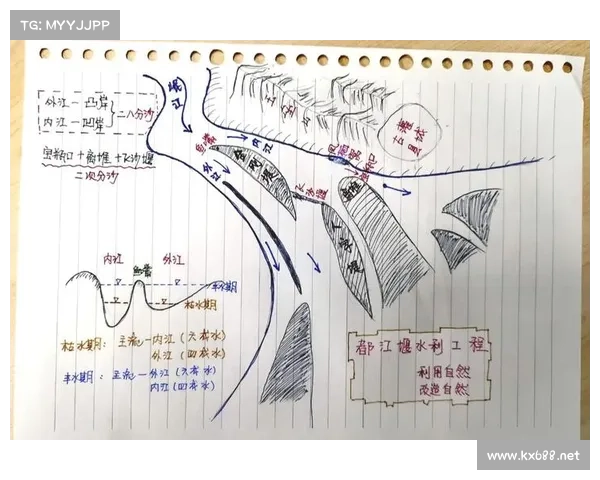 TG: MYYJJPP
外江—凸岸
内江—凹岸
二八分沙
宝瓶口+离堆+飞沙堰
二次分沙
岷江
玉垒山
灌县
古城
鱼嘴
内江
外江
金刚堤
飞沙堰
宝瓶口
离堆
人字堤
内江
鱼嘴
外江
丰水期
枯水期
枯水期：主流—内江（六成水）
外江（四成水）
丰水期：主流—外江（六成水）
内江（四成水）
都江堰水利工程
利用自然
改造自然
www.kx688.net